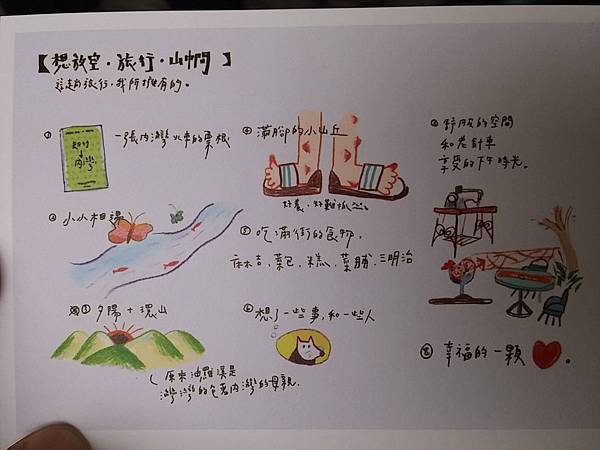 【想放空・旅行・山中間】
這趟旅行,我所擁有的。
① 一張內灣火車的票根
知行
內灣
② 小小相遇
③ 夕陽+環山
原來油羅溪是
灣灣的包著內灣的母親.
④ 滿腳的小山丘
好養、好難抓
⑤ 吃滿街的食物,
麻吉、菜包、米糕、菜脯、三明治
⑥ 想了一些事,和一些人
⑦ 舒服的空間
和老針車
享受的下午時光。
⑧ 幸福的一顆 。